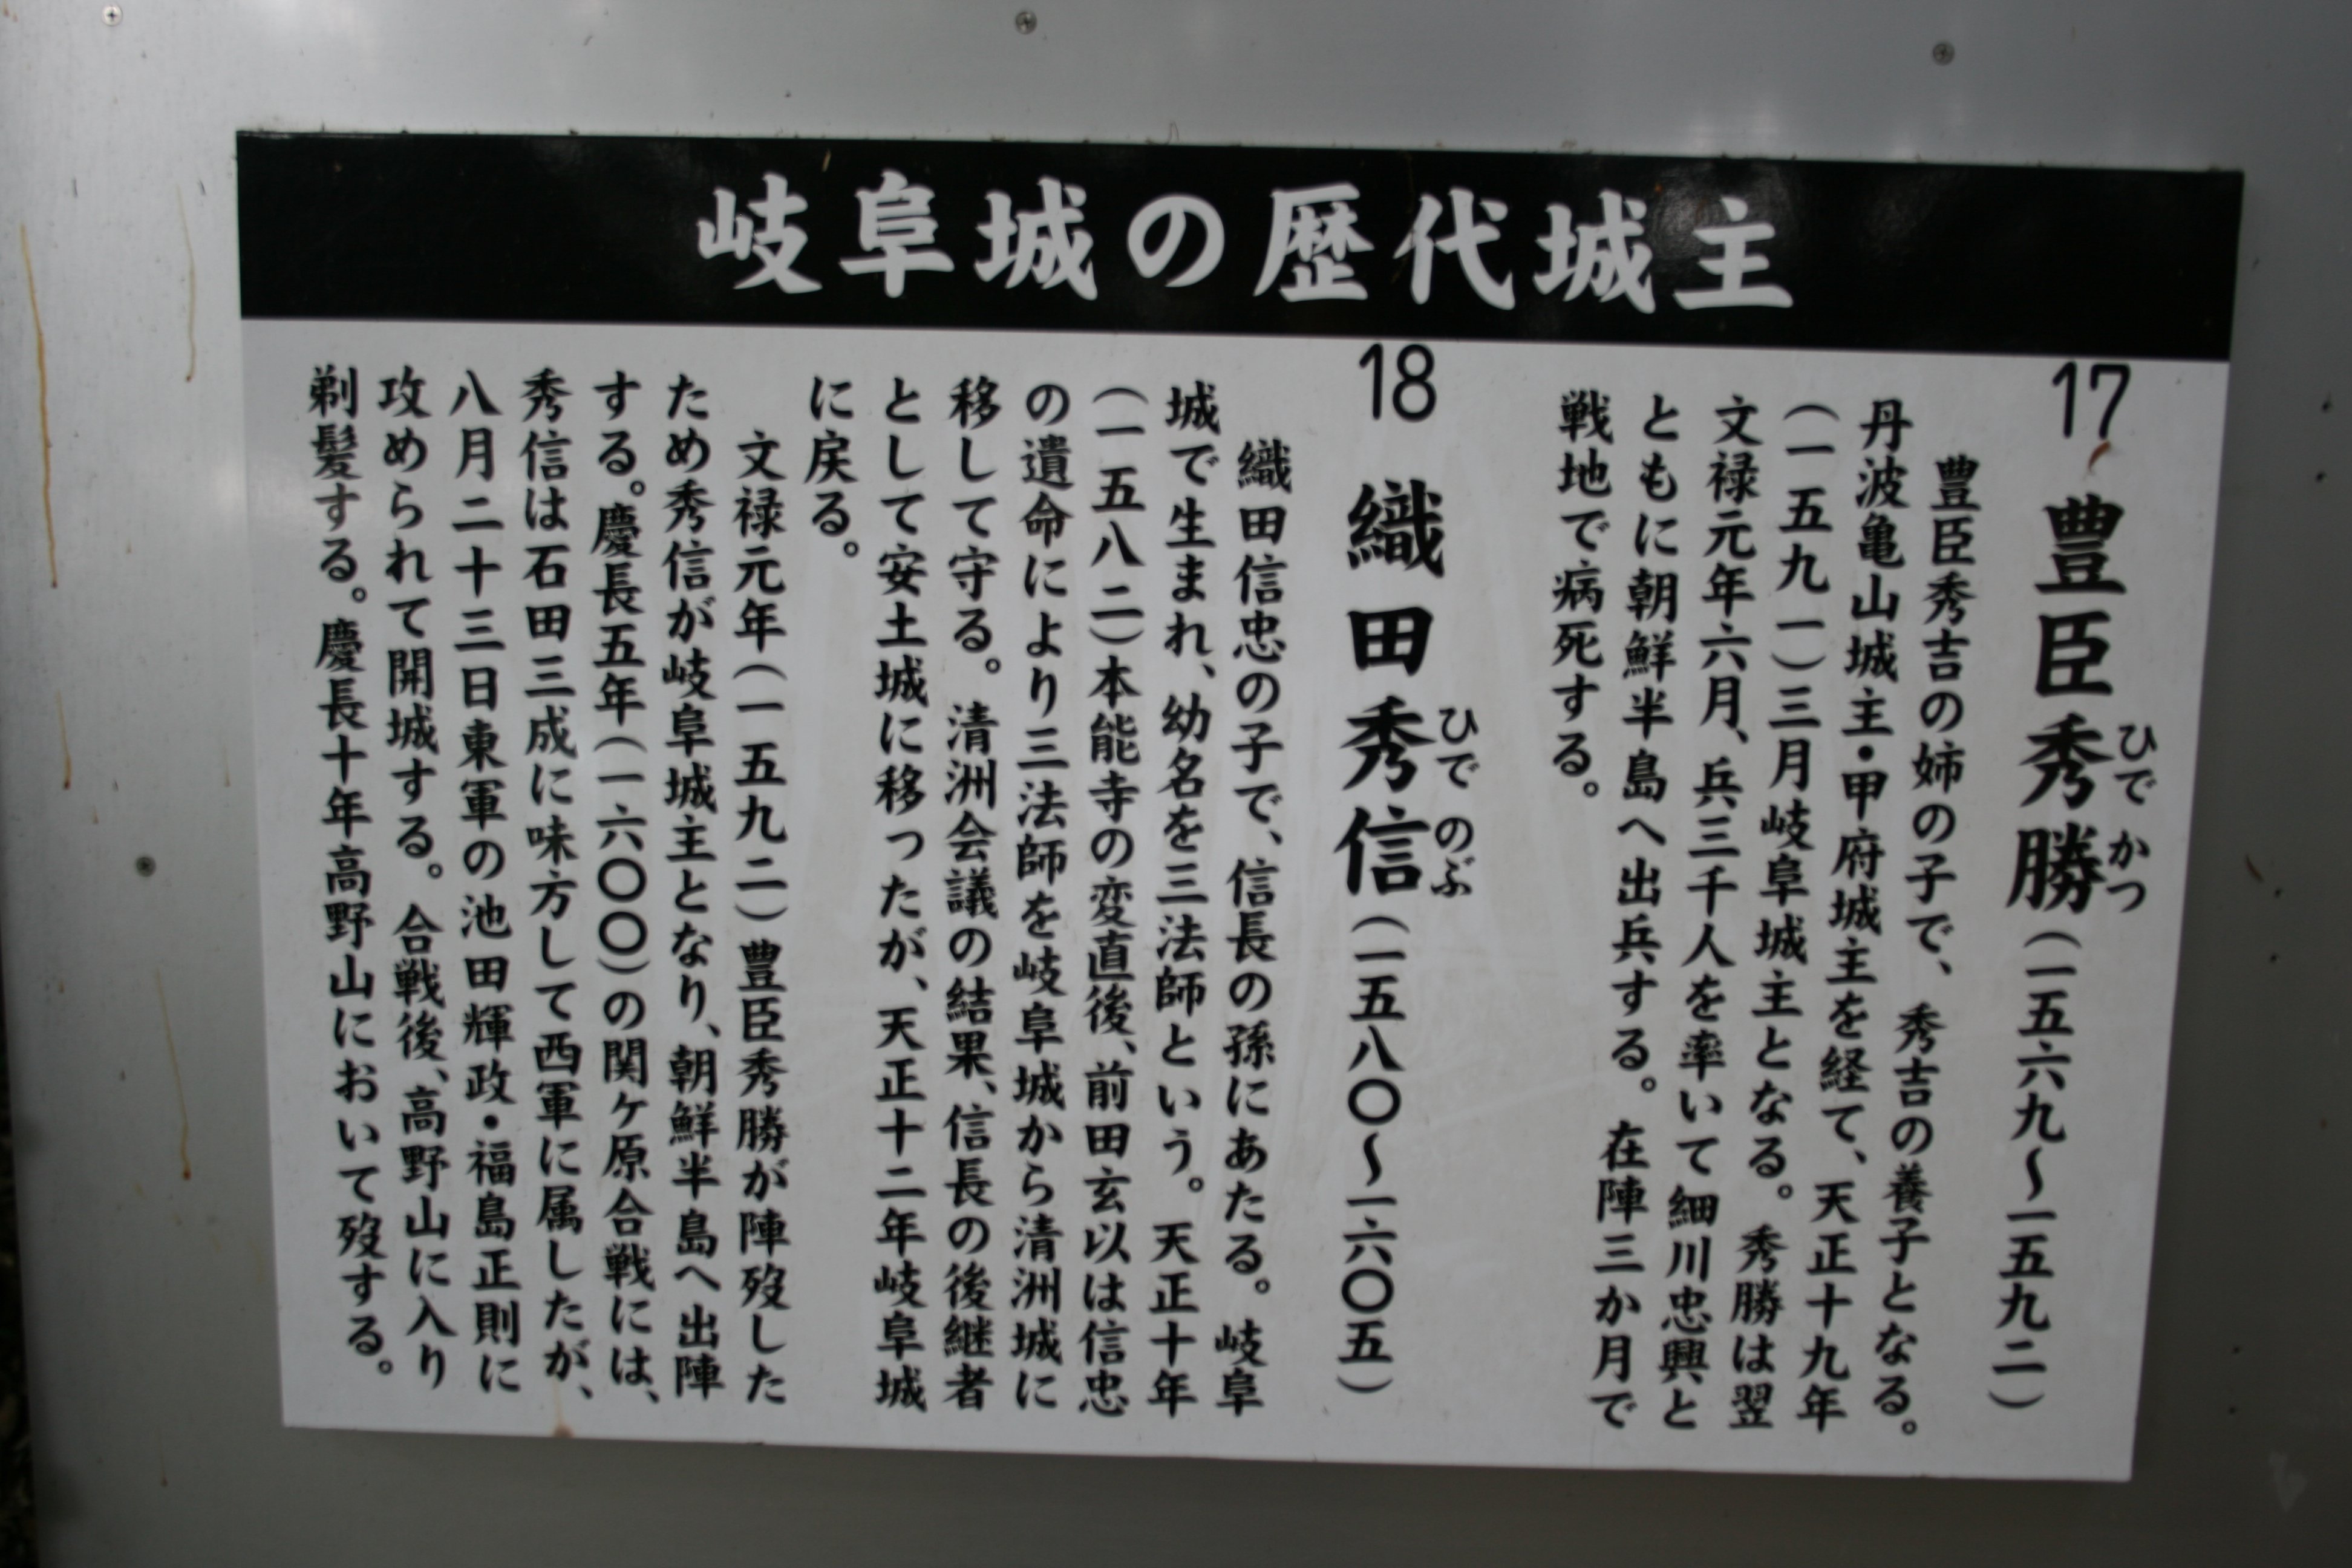 岐阜城の歴代城主
17 豊臣秀勝（一五六九〜一五九二）
ひで かつ
豊臣秀吉の姉の子で、秀吉の養子となる。
丹波亀山城主・甲府城主を経て、天正十九年
（一五九一）三月岐阜城主となる。秀勝は翌
文禄元年六月、兵三千人を率いて細川忠興と
ともに朝鮮半島へ出兵する。在陣三か月で
戦地で病死する。
18 織田秀信（一五八〇〜一六〇五）
ひで のぶ
織田信忠の子で、信長の孫にあたる。岐阜
城で生まれ、幼名を三法師という。天正十年
（一五八二）本能寺の変直後、前田玄以は信忠
の遺命により三法師を岐阜城から清洲城に
移して守る。清洲会議の結果、信長の後継者
として安土城に移ったが、天正十二年岐阜城
に戻る。
文禄元年（一五九二）豊臣秀勝が陣歿した
ため秀信が岐阜城主となり、朝鮮半島へ出陣
する。慶長五年（一六〇〇）の関ヶ原合戦には、
秀信は石田三成に味方して西軍に属したが、
八月二十三日東軍の池田輝政・福島正則に
攻められて開城する。合戦後、高野山に入り
剃髪する。慶長十年高野山において歿する。